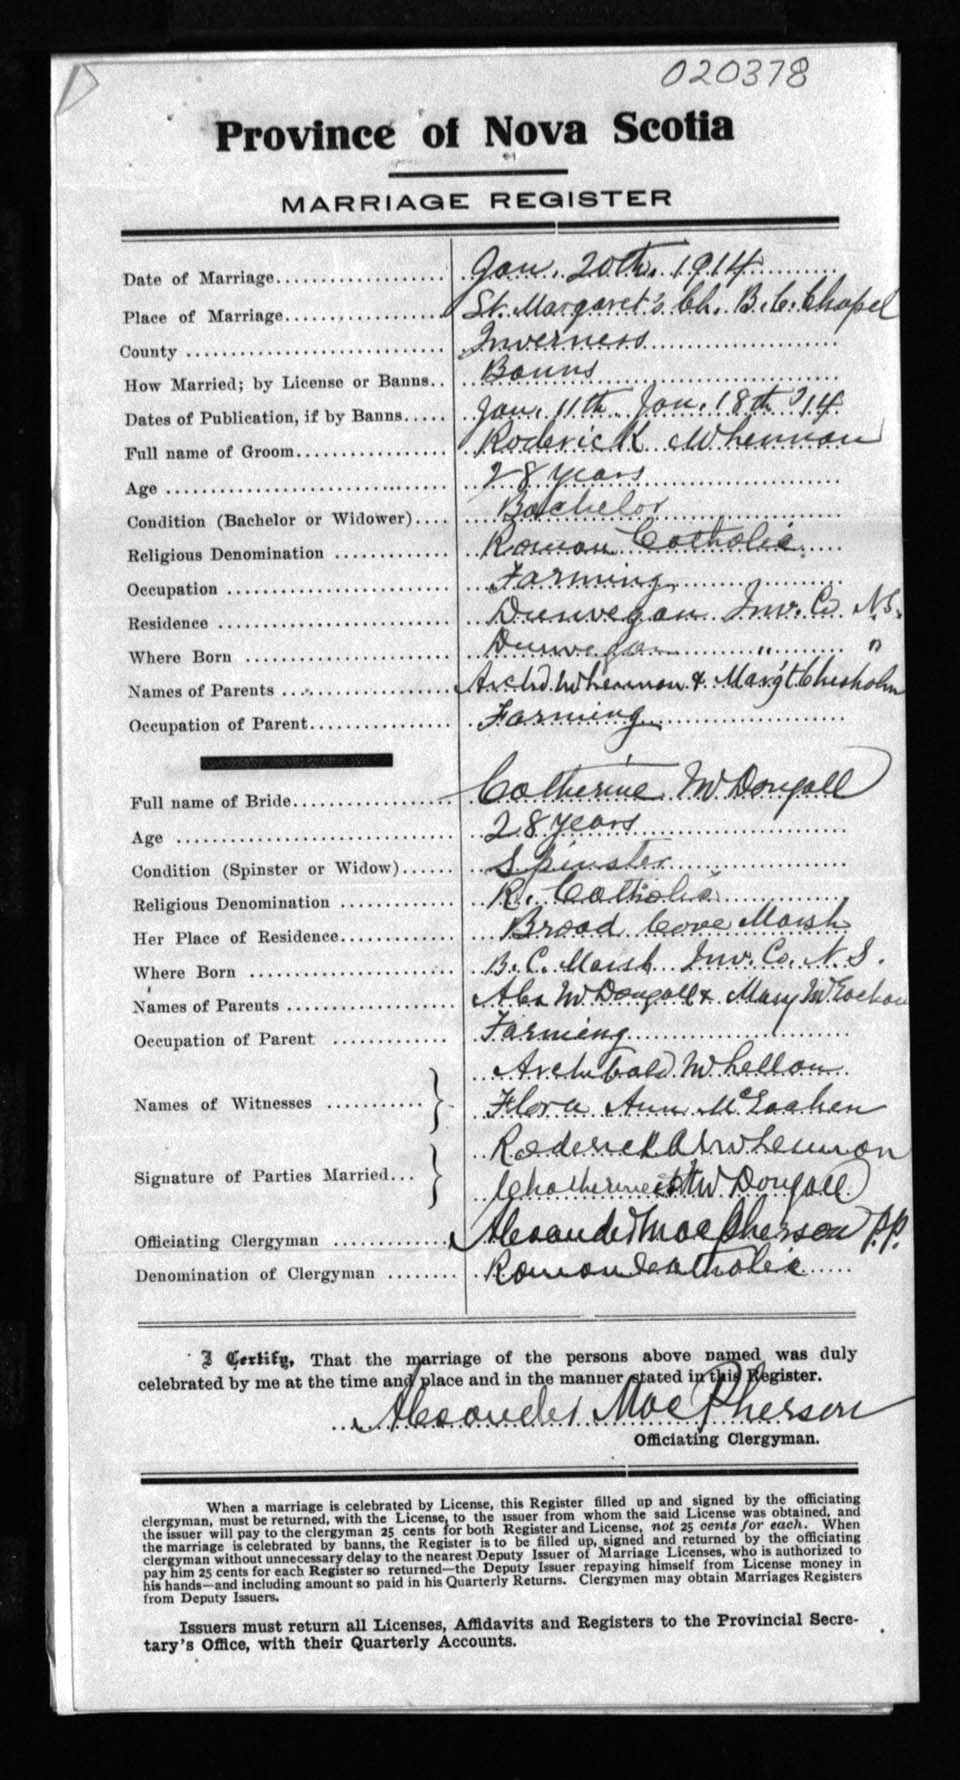 020378
Province of Nova Scotia
MARRIAGE REGISTER
Date of Marriage.................... Jan. 20th. 1914
Place of Marriage................... St. Margaret's Ch. B.C. Chapel
County .............................. Inverness
How Married; by License or Banns.. Banns
Dates of Publication, if by Banns..... Jan. 11th Jan. 18th '14
Full name of Groom.................. Roderick McLennan
Age .................................. 28 years
Condition (Bachelor or Widower).... Bachelor
Religious Denomination ............. Roman Catholic
Occupation .......................... Farming
Residence ........................... Dunvegan Inv. Co N.S.
Where Born ........................ Dunvegan " "
Names of Parents .................... Archd McLennan & Marg't Chisholm
Occupation of Parent................. Farming
Full name of Bride................... Catherine McDougall
Age ................................. 28 years
Condition (Spinster or Widow)...... Spinster
Religious Denomination ............. R. Catholic
Her Place of Residence............. Broad Cove Marsh
Where Born ........................ B.C. Marsh Inv. Co. N.S.
Names of Parents .................... Alex McDougall & Mary McEachan
Occupation of Parent ............. Farming
Archibald McLellan
Names of Witnesses ........... } Flora Ann McEachen
Roderick McLennan
Signature of Parties Married... } Catherine McDougall
Officiating Clergyman ............. Alexander MacPherson P.P.
Denomination of Clergyman ........ Roman Catholic
I Certify, That the marriage of the persons above named was duly
celebrated by me at the time and place and in the manner stated in this Register.
Alexander MacPherson
Officiating Clergyman.
When a marriage is celebrated by License, this Register filled up and signed by the officiating
clergyman, must be returned, with the License, to the issuer from whom the said License was obtained, and
the issuer will pay to the clergyman 25 cents for both Register and License, not 25 cents for each. When
the marriage is celebrated by banns, the Register is to be filled up, signed and returned by the officiating
clergyman without unnecessary delay to the nearest Deputy Issuer of Marriage Licenses, who is authorized to
pay him 25 cents for each Register so returned—the Deputy Issuer repaying himself from License money in
his hands—and including amount so paid in his Quarterly Returns. Clergymen may obtain Marriages Registers
from Deputy Issuers.
Issuers must return all Licenses, Affidavits and Registers to the Provincial Secre-
tary's Office, with their Quarterly Accounts.